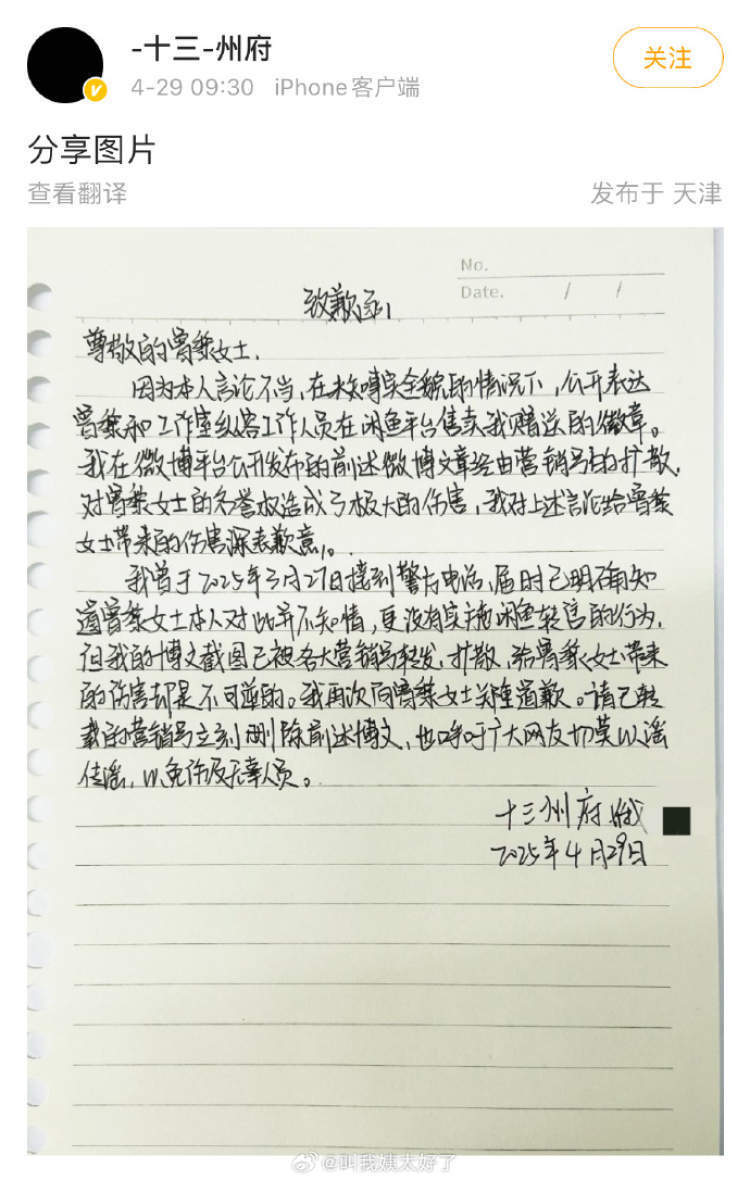 -十三-州府
关注
4-29 09:30 iPhone客户端
分享图片
查看翻译
发布于 天津
No.
Date. / /
致歉函
尊敬的曾黎女士,
因为本人言论不当,在未知全貌的情况下,公开表达
曾黎和工作室纵容工作人员在闲鱼平台售卖我赠送的徽章。
我在微博平台公开发布的前述微博文章经由营销号的扩散,
对曾黎女士的名誉权造成了极大的伤害,我对上述言论给曾黎
女士带来的伤害深表歉意。
我曾于2025年3月27日接到警方电话,届时已明确知
道曾黎女士本人对此并不知情,更没有实施闲鱼转售的行为,
但我的博文截图已被各大营销号转发,扩散,给曾黎女士带来
的伤害却是不可逆的。我再次向曾黎女士郑重道歉。请已转
载的营销号立刻删除前述博文,也呼吁广大网友切莫以谣
传谣,以免伤及无辜人员。
十三州府
2025年4月29日
@叫我姨太好了